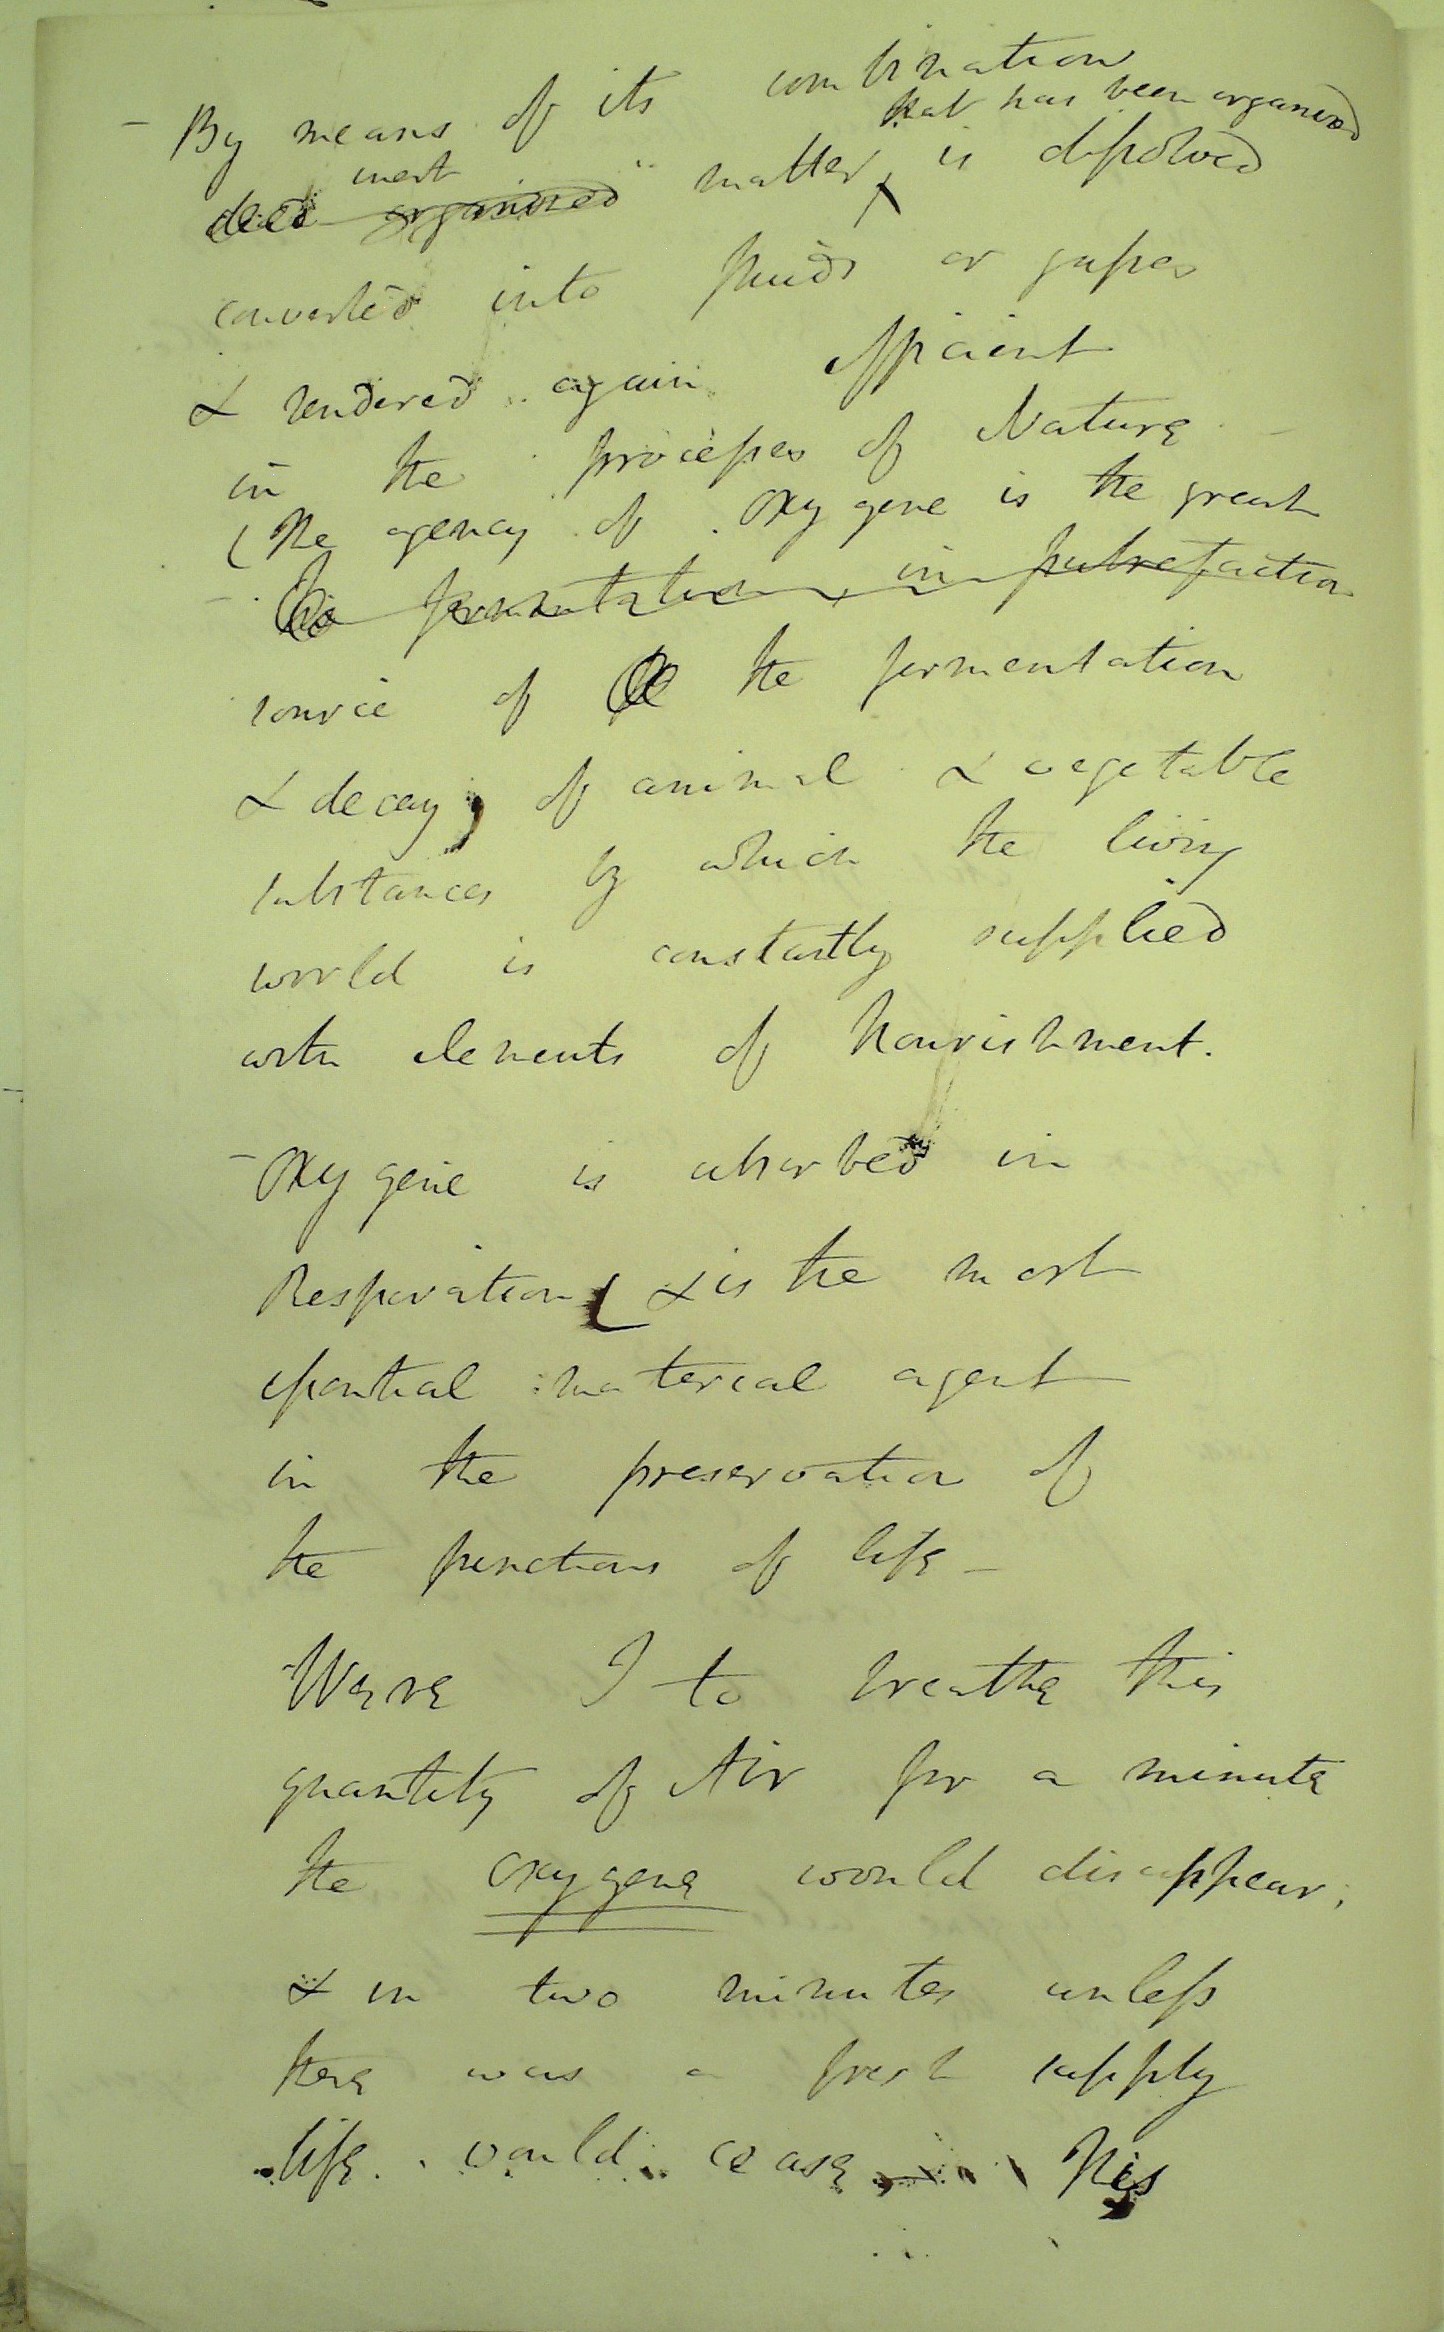 - By means of its combination
that has been organized
inert
dead organized matter is dissolved
converted into fluids or gasses
& rendered again efficient
in the processes of Nature -
(The agency of Oxygene is the great
- fermentation, in putrefaction
source of the fermentation
& decay, of animal & vegetable
substances by which the living
world is constantly supplied
with elements of nourishment.
- Oxygene is absorbed in
Respiration ( & is the most
essential material agent
in the preservation of
the functions of life -
Were I to breathe this
quantity of Air for a minute
the oxygene would disappear;
& in two minutes unless
there was a fresh supply
life would cease - This